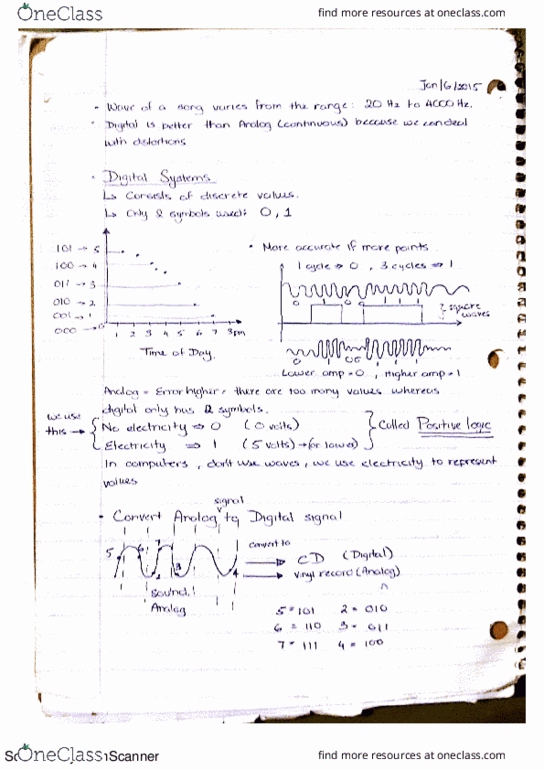 OneClass
find more resources at oneclass.com
Jan/6/2015
- Wave of a song varies from the range: 20 Hz to 4000 Hz.
Digital is better than Analog (continuous) because we can deal
with distortions
Digital Systems
↳ Consists of discrete values.
↳ Only 2 symbols used: 0, 1
• More accurate if more points.
1 cycle ⇒ 0 , 3 cycles ⇒ 1
101 → 5
100 → 4
011 → 3
010 → 2
001 → 1
000 → 0
1 2 3 4 5 6 7 8pm
Time of Day.
square
waves
Lower amp = 0 , Higher amp = 1
Analog = Error higher, there are too many values whereas
digital only has 2 symbols.
we use
this →
No electricity ⇒ 0 (0 volts)
Electricity ⇒ 1 (5 volts) → (or lower)
Called Positive logic
In computers , don't use waves, we use electricity to represent
values
signal
• Convert Analog to Digital signal
convert to
CD (Digital)
Vinyl record (Analog)
5 7 3
sound,
Analog
5 = 101 2 = 010
6 = 110 3 = 011
7 = 111 4 = 100
OneClass
Scanner
find more resources at oneclass.com